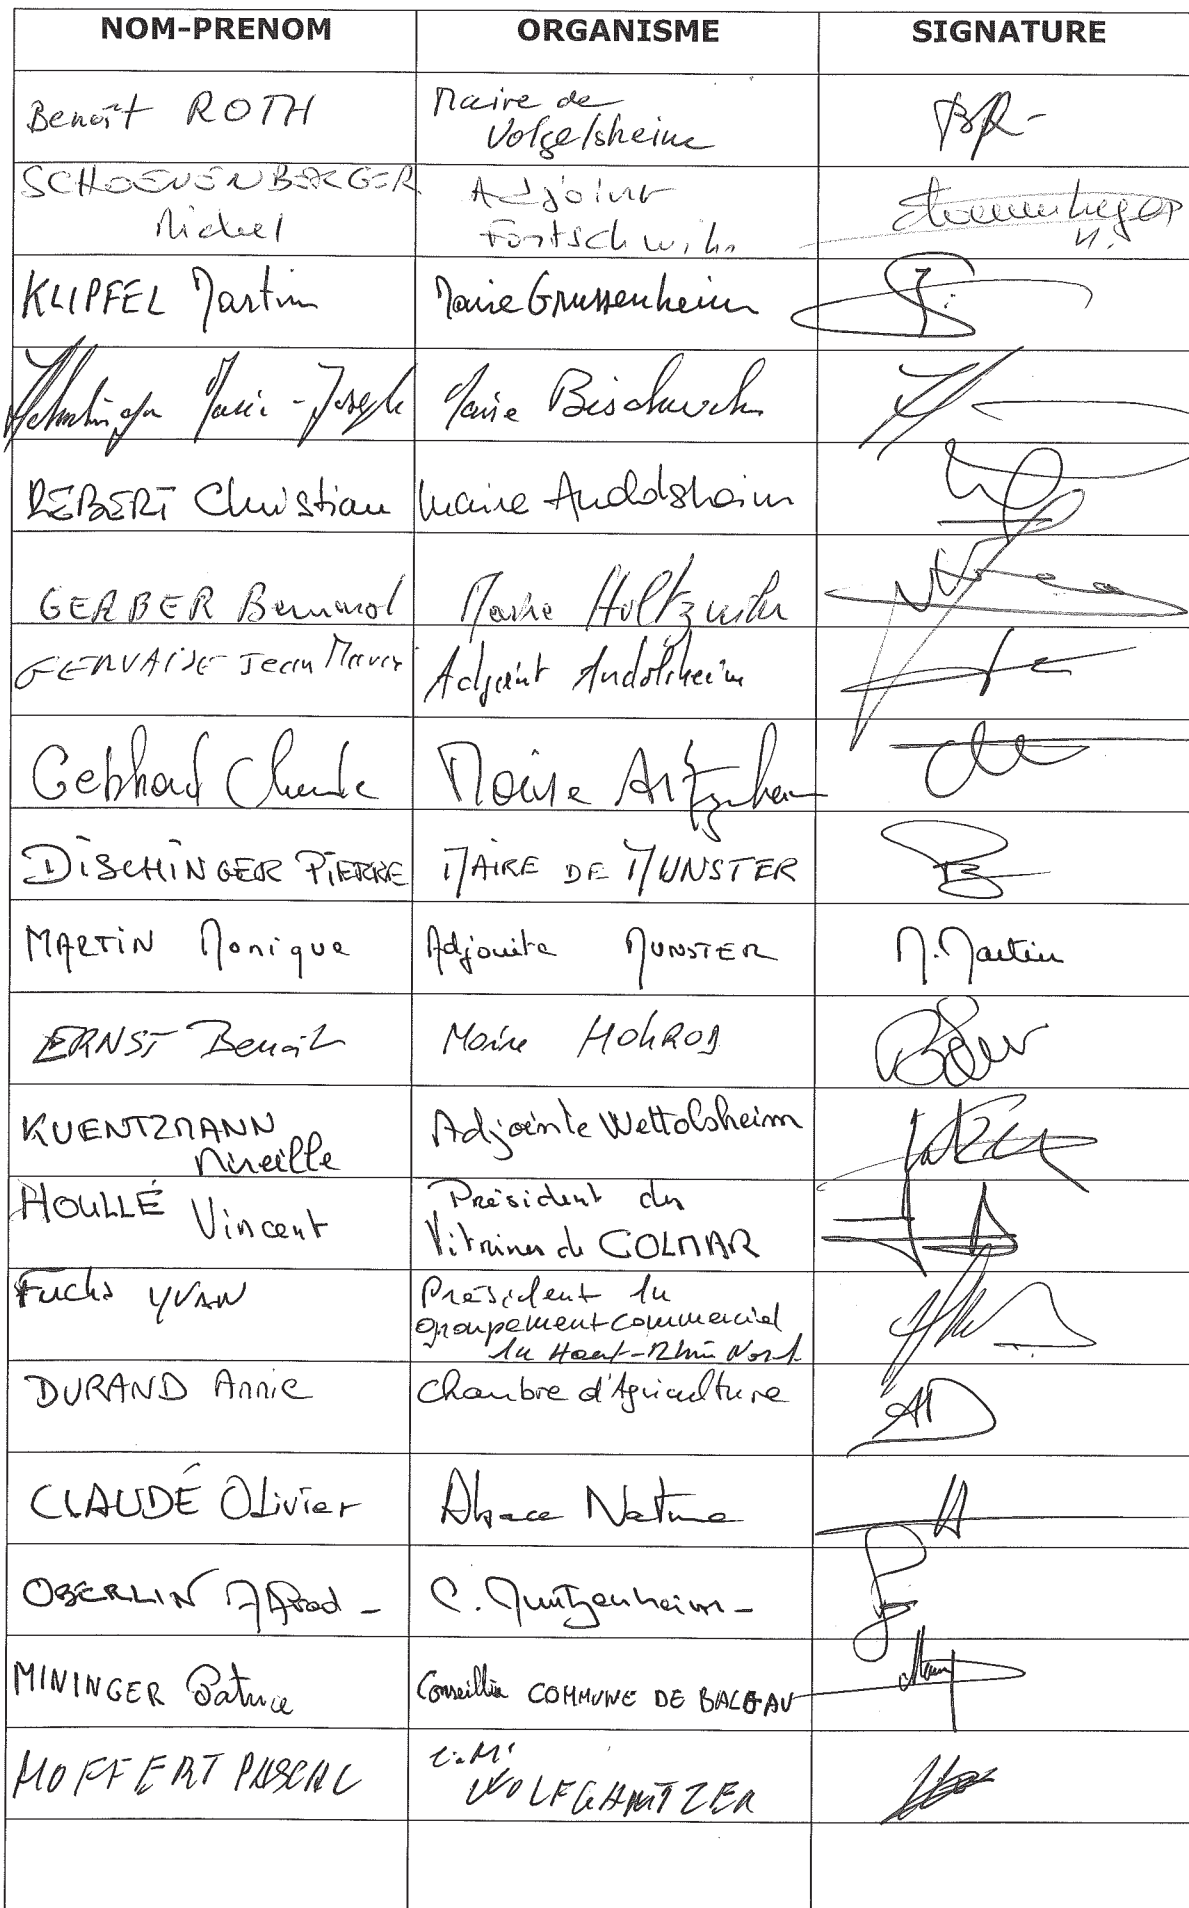 NOM-PRENOM ORGANISME SIGNATURE
Benoît ROTH Maire de
Volgelsheim
BR-
SCHOENENBERGER Adjoint
Michel Fortschwihr
M.
KLIPFEL Martin Maire Grussenheim
Marie-Joseph Maire Bischwihr
REBERT Christian Maire Andolsheim
GERBER Bernard Maire Holtzwihr
GERVAISE Jean Marie Adjoint Andolsheim
Gebhard Claude Maire Artzenheim
DISCHINGER PIERRE MAIRE DE MUNSTER
MARTIN Monique Adjointe MUNSTER M. Martin
ERNST Benoît Maire HOHROD
KUENTZMANN Adjointe Wettolsheim
Mireille
HOULLÉ Vincent Président des
Vitrines de COLMAR
Fuchs YVAN Président du
groupement commercial
du Haut-Rhin Nord
DURAND Annie Chambre d'Agriculture AD
CLAUDÉ Olivier Alsace Nature
OBERLIN C. Muntzenheim-
MININGER Patrice Conseiller COMMUNE DE BALGAU
HOFFERT PASCAL C.M.
WOLFGANTZEN